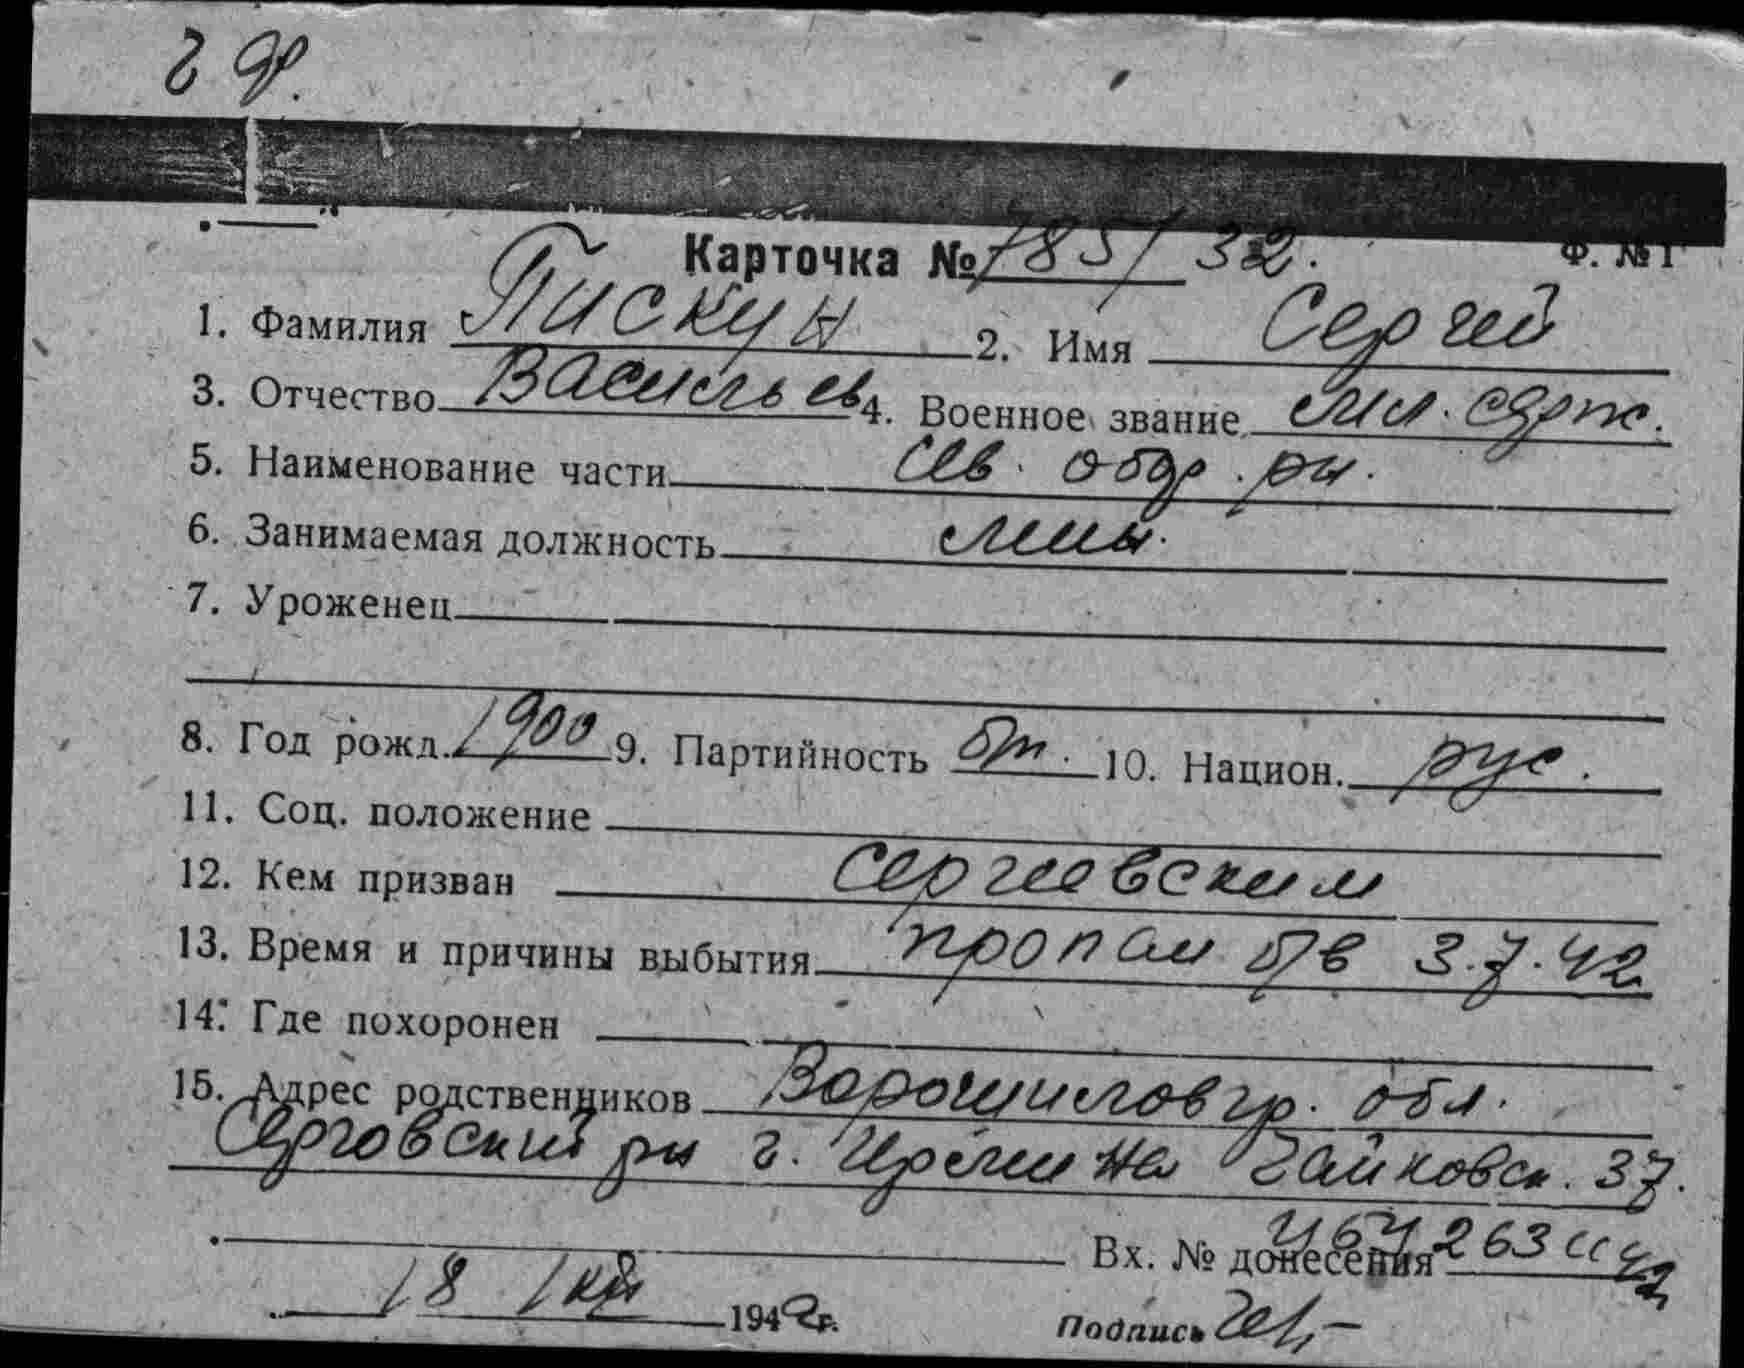 Карточка № 785/32. Ф. № 1
1. Фамилия Пискун 2. Имя Сергей
3. Отчество Васильев 4. Военное звание мл. серж.
5. Наименование части Сев. обор. рн.
6. Занимаемая должность
7. Уроженец
8. Год рожд. 1900 9. Партийность бп. 10. Национ. рус.
11. Соц. положение
12. Кем призван Сергиевским
13. Время и причины выбытия пропал б/в 3.7.42
14. Где похоронен
15. Адрес родственников Ворошиловгр. обл.
рн г. Чайковск. 37.
Вх. № донесения 263
18 194 г. Подпись